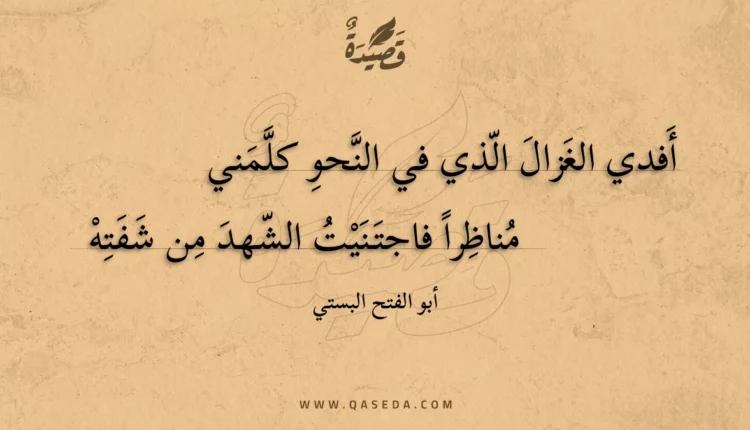 قَصِيدَةٌ
أَفدي الغَزالَ الّذي في النَّحوِ كلَّمَني
مُناظِراً فاجتَنَيْتُ الشّهدَ مِن شَفَتِهْ
أبو الفتح البستي
WWW.QASEDA.COM